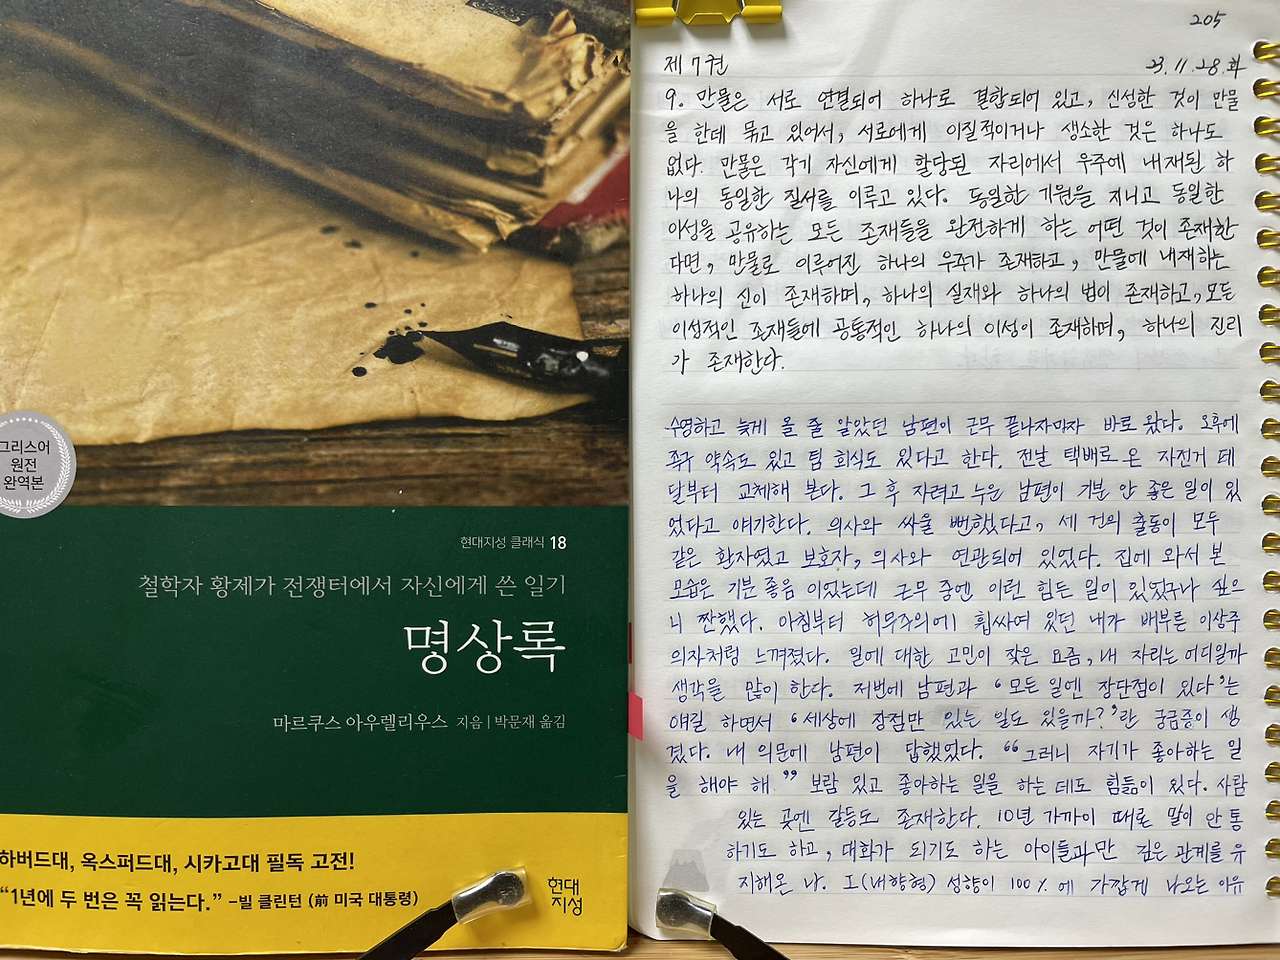 그리스어
원전
완역본
현대지성 클래식 18
철학자 황제가 전쟁터에서 자신에게 쓴 일기
명상록
마르쿠스 아우렐리우스 지음 | 박문재 옮김
하버드대, 옥스퍼드대, 시카고대 필독 고전!
“1년에 두 번은 꼭 읽는다.” –빌 클린턴 (前 미국 대통령)
현대
지성
205
제7권 23.11.28.화
9. 만물은 서로 연결되어 하나로 결합되어 있고, 신성한 것이 만물
을 한데 묶고 있어서, 서로에게 이질적이거나 생소한 것은 하나도
없다. 만물은 각기 자신에게 할당된 자리에서 우주에 내재된 하
나의 동일한 질서를 이루고 있다. 동일한 기원을 지니고 동일한
이성을 공유하는 모든 존재들을 완전하게 하는 어떤 것이 존재한
다면, 만물로 이루어진 하나의 우주가 존재하고, 만물에 내재하는
하나의 신이 존재하며, 하나의 실재와 하나의 법이 존재하고, 모든
이성적인 존재들에 공통적인 하나의 이성이 존재하며, 하나의 진리
가 존재한다.
수영하고 늦게 올 줄 알았던 남편이 근무 끝나자마자 바로 왔다. 오후에
족구 약속도 있고 팀 회식도 있다고 한다. 전날 택배로 온 자전거 페
달부터 교체해 본다. 그 후 자려고 누운 남편이 기분 안 좋은 일이 있
었다고 얘기한다. 의사와 싸울 뻔했다고, 세 건의 출동이 모두
같은 환자였고 보호자, 의사와 연관되어 있었다. 집에 와서 본
모습은 기분 좋음 이었는데 근무 중엔 이런 힘든 일이 있었구나 싶으
니 짠했다. 아침부터 허무주의에 휩싸여 있던 내가 배부른 이상주
의자처럼 느껴졌다. 일에 대한 고민이 잦은 요즘, 내 자리는 어디일까
생각을 많이 한다. 저번에 남편과 ‘모든 일엔 장단점이 있다’는
얘길 하면서 ‘세상에 장점만 있는 일도 있을까?’란 궁금증이 생
겼다. 내 의문에 남편이 답했었다. “그러니 자기가 좋아하는 일
을 해야 해.” 보람 있고 좋아하는 일을 하는 데도 힘듦이 있다. 사람
있는 곳엔 갈등도 존재한다. 10년 가까이 때론 말이 안 통
하기도 하고, 대화가 되기도 하는 아이들과만 깊은 관계를 유
지해온 나. I(내향형) 성향이 100%에 가깝게 나오는 이유